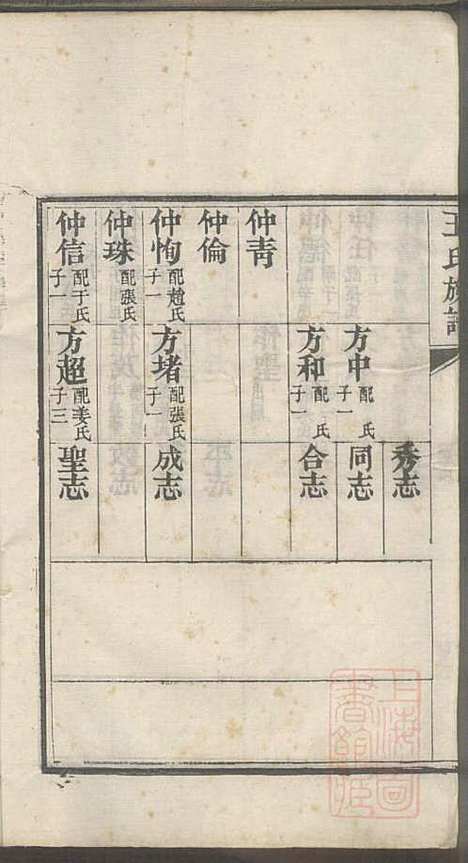 王氏族譜
秀志
方中 配 氏 子一
同志
方和 配 氏 子一
合志
仲靑
仲倫
仲恂 配趙氏 子一
方堵 配張氏 子一
成志
仲珠 配張氏
仲信 配于氏 子一
方超 配姜氏 子三
聖志
上海圖書館藏